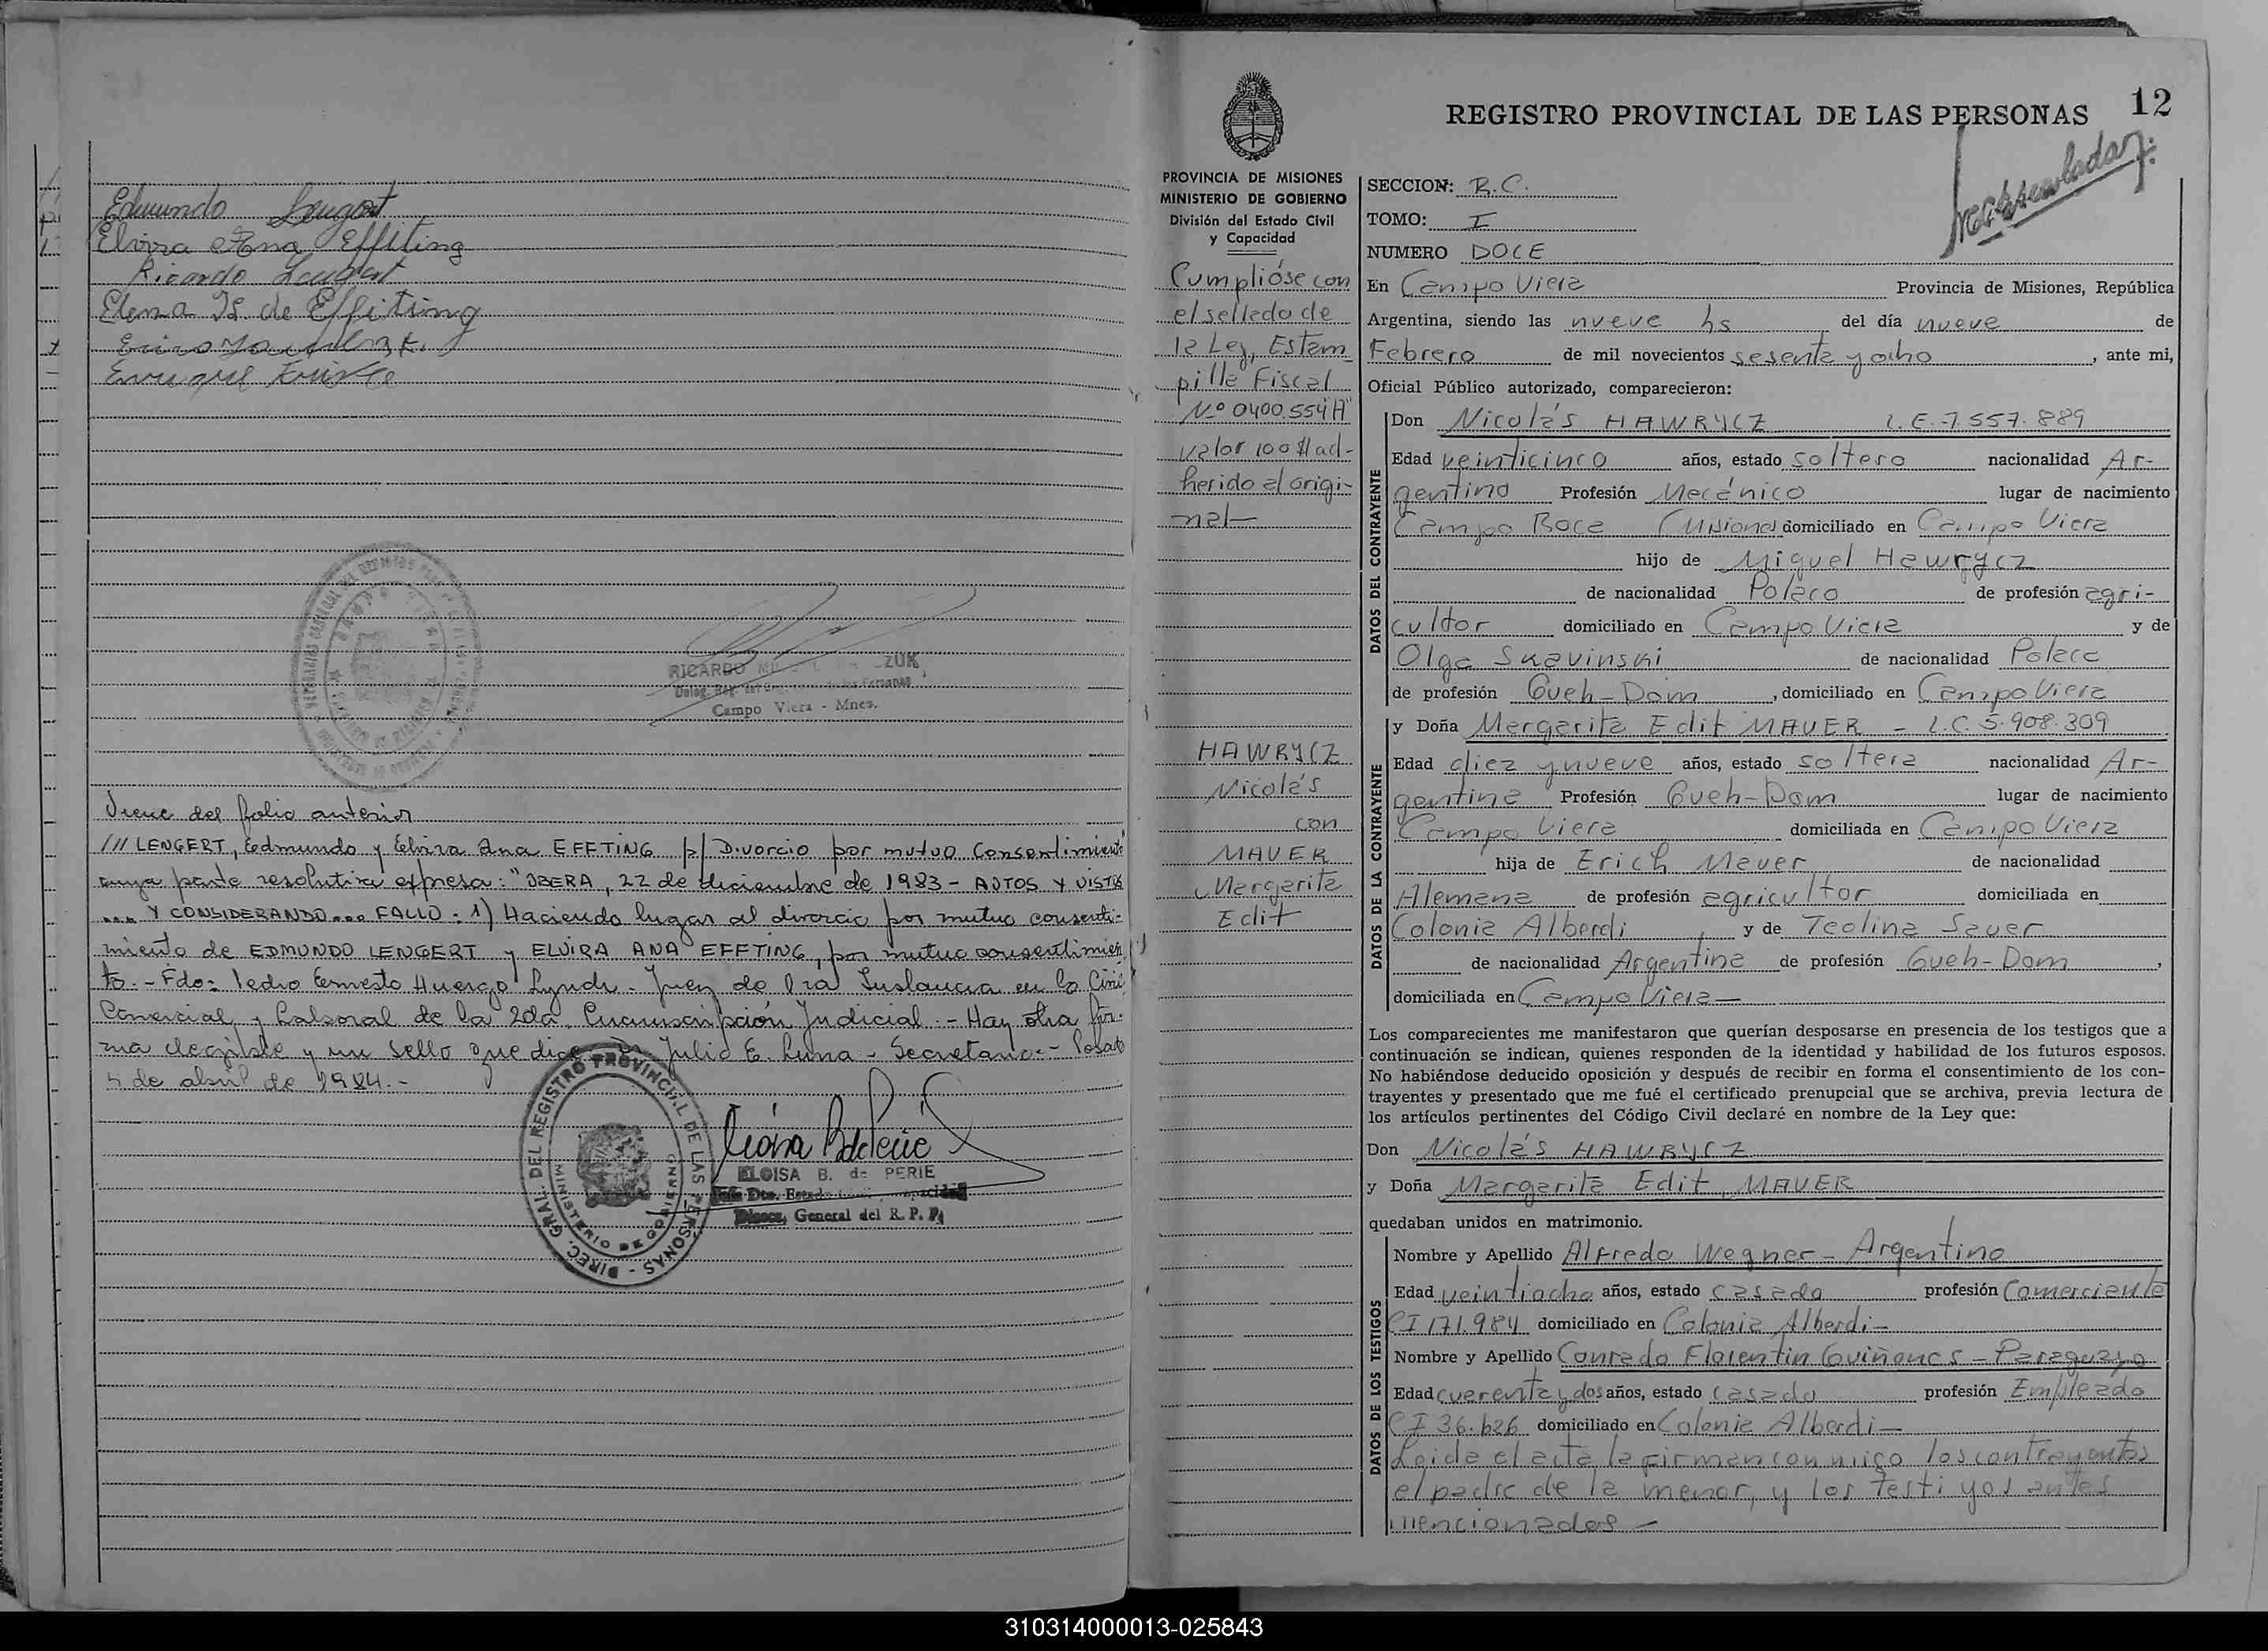 Edmundo Lengert
Elvira Ana Effting
Ricardo Lengert
Elena H. de Effting
Enrique
RICARDO ZUK
Campo Viera - Mnes.
Viene del folio anterior
/// LENGERT, Edmundo y Elvira Ana EFFTING p/ Divorcio por mutuo Consentimiento
cuya parte resolutiva expresa: "OBERA, 22 de diciembre de 1983 - AUTOS Y VISTOS
.... Y CONSIDERANDO... FALLO: 1) Haciendo lugar al divorcio por mutuo consenti-
miento de EDMUNDO LENGERT y ELVIRA ANA EFFTING, por mutuo consentimien
to. - Fdo: Pedro Ernesto Huergo Lynch - Juez de 1ra Instancia en lo Civil
Comercial y Laboral de la 2da. Circunscripción Judicial. - Hay otra fir-
ma ilegible y un sello que dice Julio E. Luna - Secretario. - Posadas
4 de abril de 1984. -
DIREC. GRAL. DEL REGISTRO PROVINCIAL DE LAS PERSONAS
MINISTERIO DE GOBIERNO
ELOISA B. de PERIE
General del R. P. P.
12
REGISTRO PROVINCIAL DE LAS PERSONAS
PROVINCIA DE MISIONES
MINISTERIO DE GOBIERNO
División del Estado Civil
y Capacidad
Cumplióse con
el sellado de
la Ley, Estam
pilla Fiscal
Nº 0400.554 A
valor 100 $ ad-
herido al origi-
nal-
HAWRYCZ
Nicolás
con
MAUER
Margarita
Edit
SECCION: R.C.
TOMO: I
NUMERO DOCE
En Campo Viera Provincia de Misiones, República
Argentina, siendo las nueve hs del día nueve de
Febrero de mil novecientos sesenta y ocho, ante mi,
Oficial Público autorizado, comparecieron:
DATOS DEL CONTRAYENTE
Don Nicolás HAWRYCZ L.E. 7.557.889
Edad veinticinco años, estado soltero nacionalidad Ar-
gentino Profesión Mecánico lugar de nacimiento
Campo Roca (Misiones) domiciliado en Campo Viera
hijo de Miguel Hawrycz
de nacionalidad Polaco de profesión agri-
cultor domiciliado en Campo Viera y de
Olga Skavinski de nacionalidad Polaca
de profesión Queh-Dom, domiciliado en Campo Viera
DATOS DE LA CONTRAYENTE
y Doña Margarita Edit MAUER - L.C. 5.908.309
Edad diez y nueve años, estado soltera nacionalidad Ar-
gentina Profesión Queh-Dom lugar de nacimiento
Campo Viera domiciliada en Campo Viera
hija de Erich Mauer de nacionalidad
Alemana de profesión agricultor domiciliada en
Colonia Alberdi y de Teolina Sauer
de nacionalidad Argentina de profesión Queh-Dom,
domiciliada en Campo Viera-
Los comparecientes me manifestaron que querían desposarse en presencia de los testigos que a
continuación se indican, quienes responden de la identidad y habilidad de los futuros esposos.
No habiéndose deducido oposición y después de recibir en forma el consentimiento de los con-
trayentes y presentado que me fué el certificado prenupcial que se archiva, previa lectura de
los artículos pertinentes del Código Civil declaré en nombre de la Ley que:
Don Nicolás HAWRYCZ
y Doña Margarita Edit MAUER
quedaban unidos en matrimonio.
DATOS DE LOS TESTIGOS
Nombre y Apellido Alfredo Wegner - Argentino
Edad veintiocho años, estado casado profesión Comerciante
CI 171.984 domiciliado en Colonia Alberdi-
Nombre y Apellido Conrado Florentin Quiñones - Paraguayo
Edad cuarenta y dos años, estado casado profesión Empleado
CI 36.626 domiciliado en Colonia Alberdi-
Leida el acta la firman conmigo los contrayentes
el padre de la menor, y los testigos antes
mencionados -
310314000013-025843